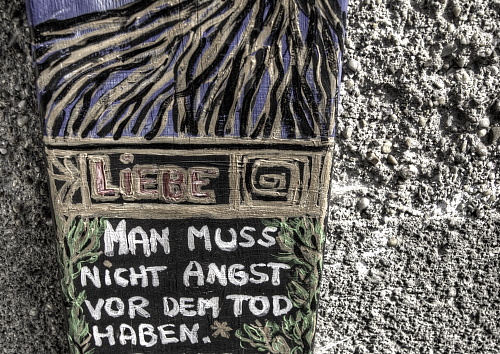 LiEBE
MAN MUSS
NiCHT ANGST
VOR DEM TOD
HABEN.*